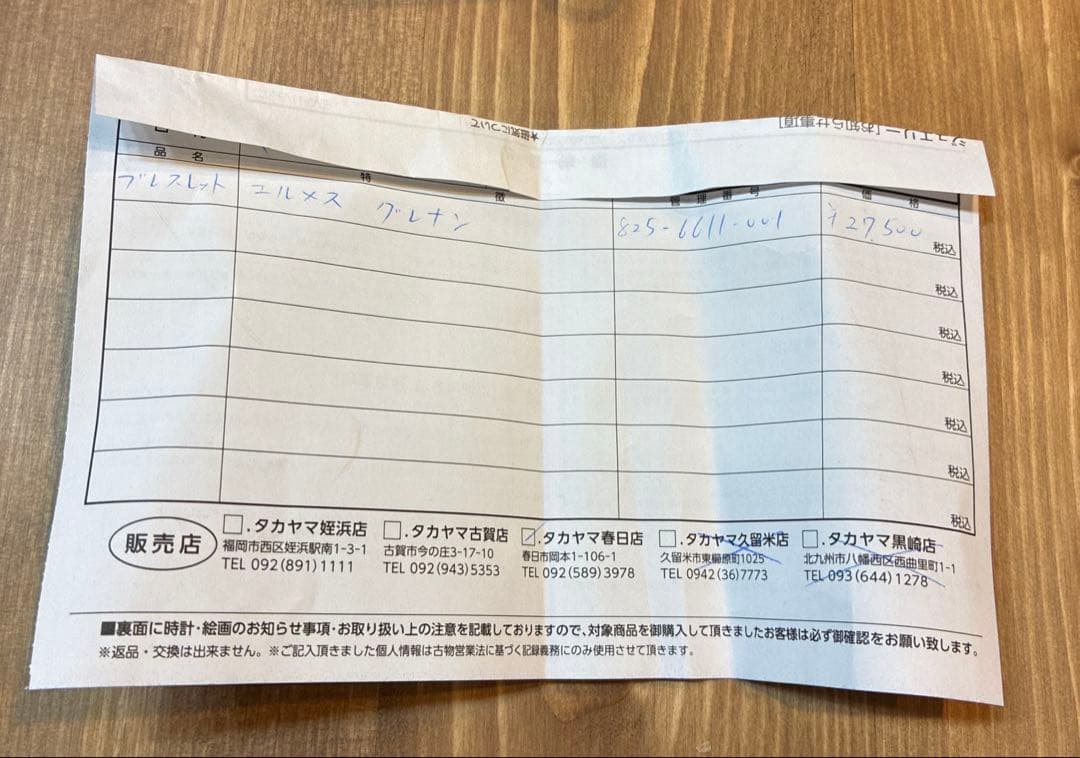 ★磁気について
ジュエリー[お知らせ事項]
品 名
特 徴
管 理 番 号
価 格
ブレスレット エルメス グレナン 825-6611-001 ¥27,500 税込
税込
税込
税込
税込
税込
税込
販売店
□.タカヤマ姪浜店
福岡市西区姪浜駅南1-3-1
TEL 092(891)1111
□.タカヤマ古賀店
古賀市今の庄3-17-10
TEL 092(943)5353
☑.タカヤマ春日店
春日市岡本1-106-1
TEL 092(589)3978
□.タカヤマ久留米店
久留米市東櫛原町1025
TEL 0942(36)7773
□.タカヤマ黒崎店
北九州市八幡西区西曲里町1-1
TEL 093(644)1278
■裏面に時計・絵画のお知らせ事項・お取り扱い上の注意を記載しておりますので、対象商品を御購入して頂きましたお客様は必ず御確認をお願い致します。
※返品・交換は出来ません。※ご記入頂きました個人情報は古物営業法に基づく記録義務にのみ使用させて頂きます。